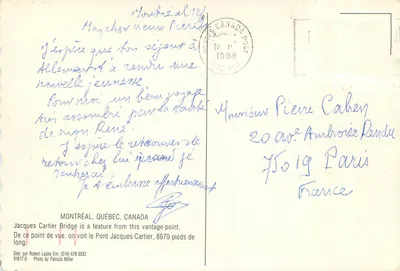 Montréal 12/9
Mon cher vieux Pierre
J'espère que ton séjour à
Allemagne t'a rendu une
nouvelle jeunesse
Pour moi, un beau voyage
très assombri par la santé
de mon René
J'espère le retrouver de
retour chez lui quand je
rentrerai
Je t'embrasse affectueusement
CANADA POST
1988
Monsieur Pierre Cahen
20 ave Ambroise Rendu
75019 Paris
France
MONTRÉAL, QUÉBEC, CANADA
Jacques Cartier Bridge is a feature from this vantage point.
De ce point de vue, on voit le Pont Jacques-Cartier, 8670 pieds de
long.
Dist. par Rupert Lajoie Enr. (514) 578 3032
51817-D Photo by Patricia Miller